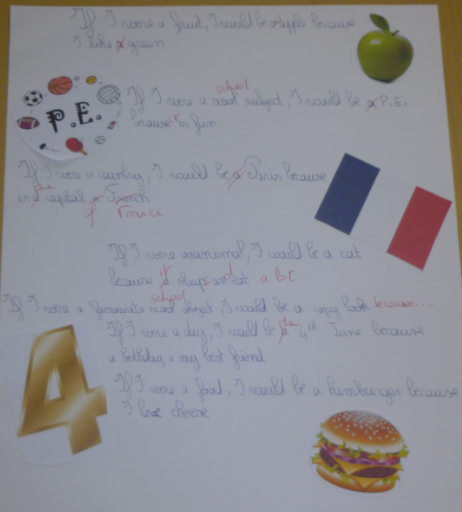 If I were a fruit, I would be apple because
I like green.
P.E.
school
If I were a subject, I would be P.E.
because is fun
If I were a country, I would be a Paris because
the
is capital French
of France
If I were an animal, I would be a cat
because it sleeps a lot
school
If I were a favourite object, I would be a copy book because...
the
If I were a day, I would be 4th June because
a birthday a my best friend
4
If I were a food, I would be a hamburger because
I love cheese